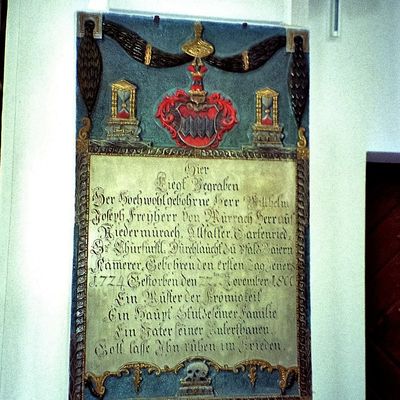 Hier
Liegt Begraben
Der Hochwohlgebohrne Herr Wilhelm
Joseph Freyherr Von Murrach Herr auf
Niedermurach,
Sr Churfürstl. Durchlaucht zu Pfalz Baiern
Kämerer, Gebohren den ersten Tag Jener
1724 Gestorben den 22ten November
Ein Muster der Frömigkeit
Ein Haupt Stütze seiner Familie
Ein Vater seiner Unterthanen.
Gott lasse Ihn ruhen im Frieden.